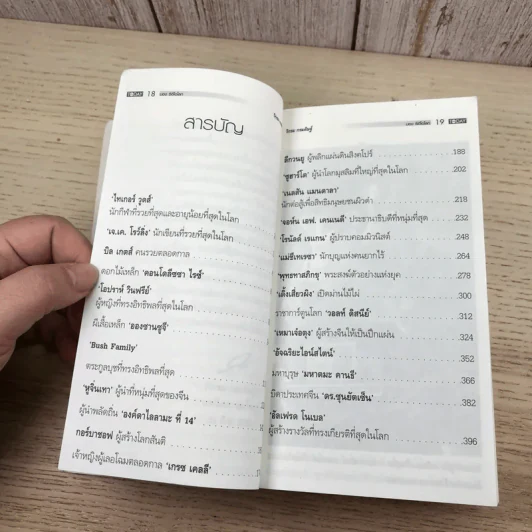 TODAY 18 มอง ทีทีโลก
สารบัญ
'ไทเกอร์ วูดส์'
นักกีฬาที่รวยที่สุดและอายุน้อยที่สุดในโลก
'เจ.เค. โรว์ลิ่ง' นักเขียนที่รวยที่สุดในโลก
บิล เกตส์ คนรวยตลอดกาล
ดอกไม้เหล็ก 'คอนโดลีซซา ไรซ์'
'โอปราห์ วินฟรีย์'
ผู้หญิงที่ทรงอิทธิพลที่สุดในโลก
ผีเสื้อเหล็ก 'อองซานซูจี'
'Bush Family'
ตระกูลบุชที่ทรงอิทธิพลที่สุด
'หูจิ่นเทา' ผู้นำที่หนุ่มที่สุดของจีน
ผู้นำพลัดถิ่น 'องค์ดาไลลามะ ที่ 14'
กอร์บาชอฟ ผู้สร้างโลกสันติ
เจ้าหญิงผู้เลอโฉมตลอดกาล 'เกรซ เคลลี่'
19 TODAY
ลีกวนยู ผู้พลิกแผ่นดินสิงคโปร์ 188
'ซูฮาร์โต' ผู้นำโลกมุสลิมที่ใหญ่ที่สุดในโลก 202
'เนลสัน แมนดาลา'
นักต่อสู้เพื่อสิทธิมนุษยชนผิวดำ 218
'จอห์น เอฟ. เคนเนดี' ประธานาธิบดีที่หนุ่มที่สุด 232
'โรนัลด์ เรแกน' ผู้ปราบคอมมิวนิสต์ 248
'แม่ชีเทเรซา' นักบุญแห่งคนยากไร้ 264
'พุทธทาสภิกขุ' พระสงฆ์ตัวอย่างแห่งยุค 278
'เติ้งเสี่ยวผิง' เปิดม่านไม้ไผ่ 300
ราชาการ์ตูนโลก 'วอลท์ ดิสนีย์' 312
'เหมาเจ๋อตุง' ผู้สร้างจีนให้เป็นปึกแผ่น 324
'อัจฉริยะไอน์สไตน์' 352
มหาบุรุษ 'มหาตมะ คานธี' 366
บิดาประเทศจีน 'ดร.ซุนยัตเซ็น' 382
'อัลเฟรด โนเบล'
ผู้สร้างรางวัลที่ทรงเกียรติที่สุดในโลก 396